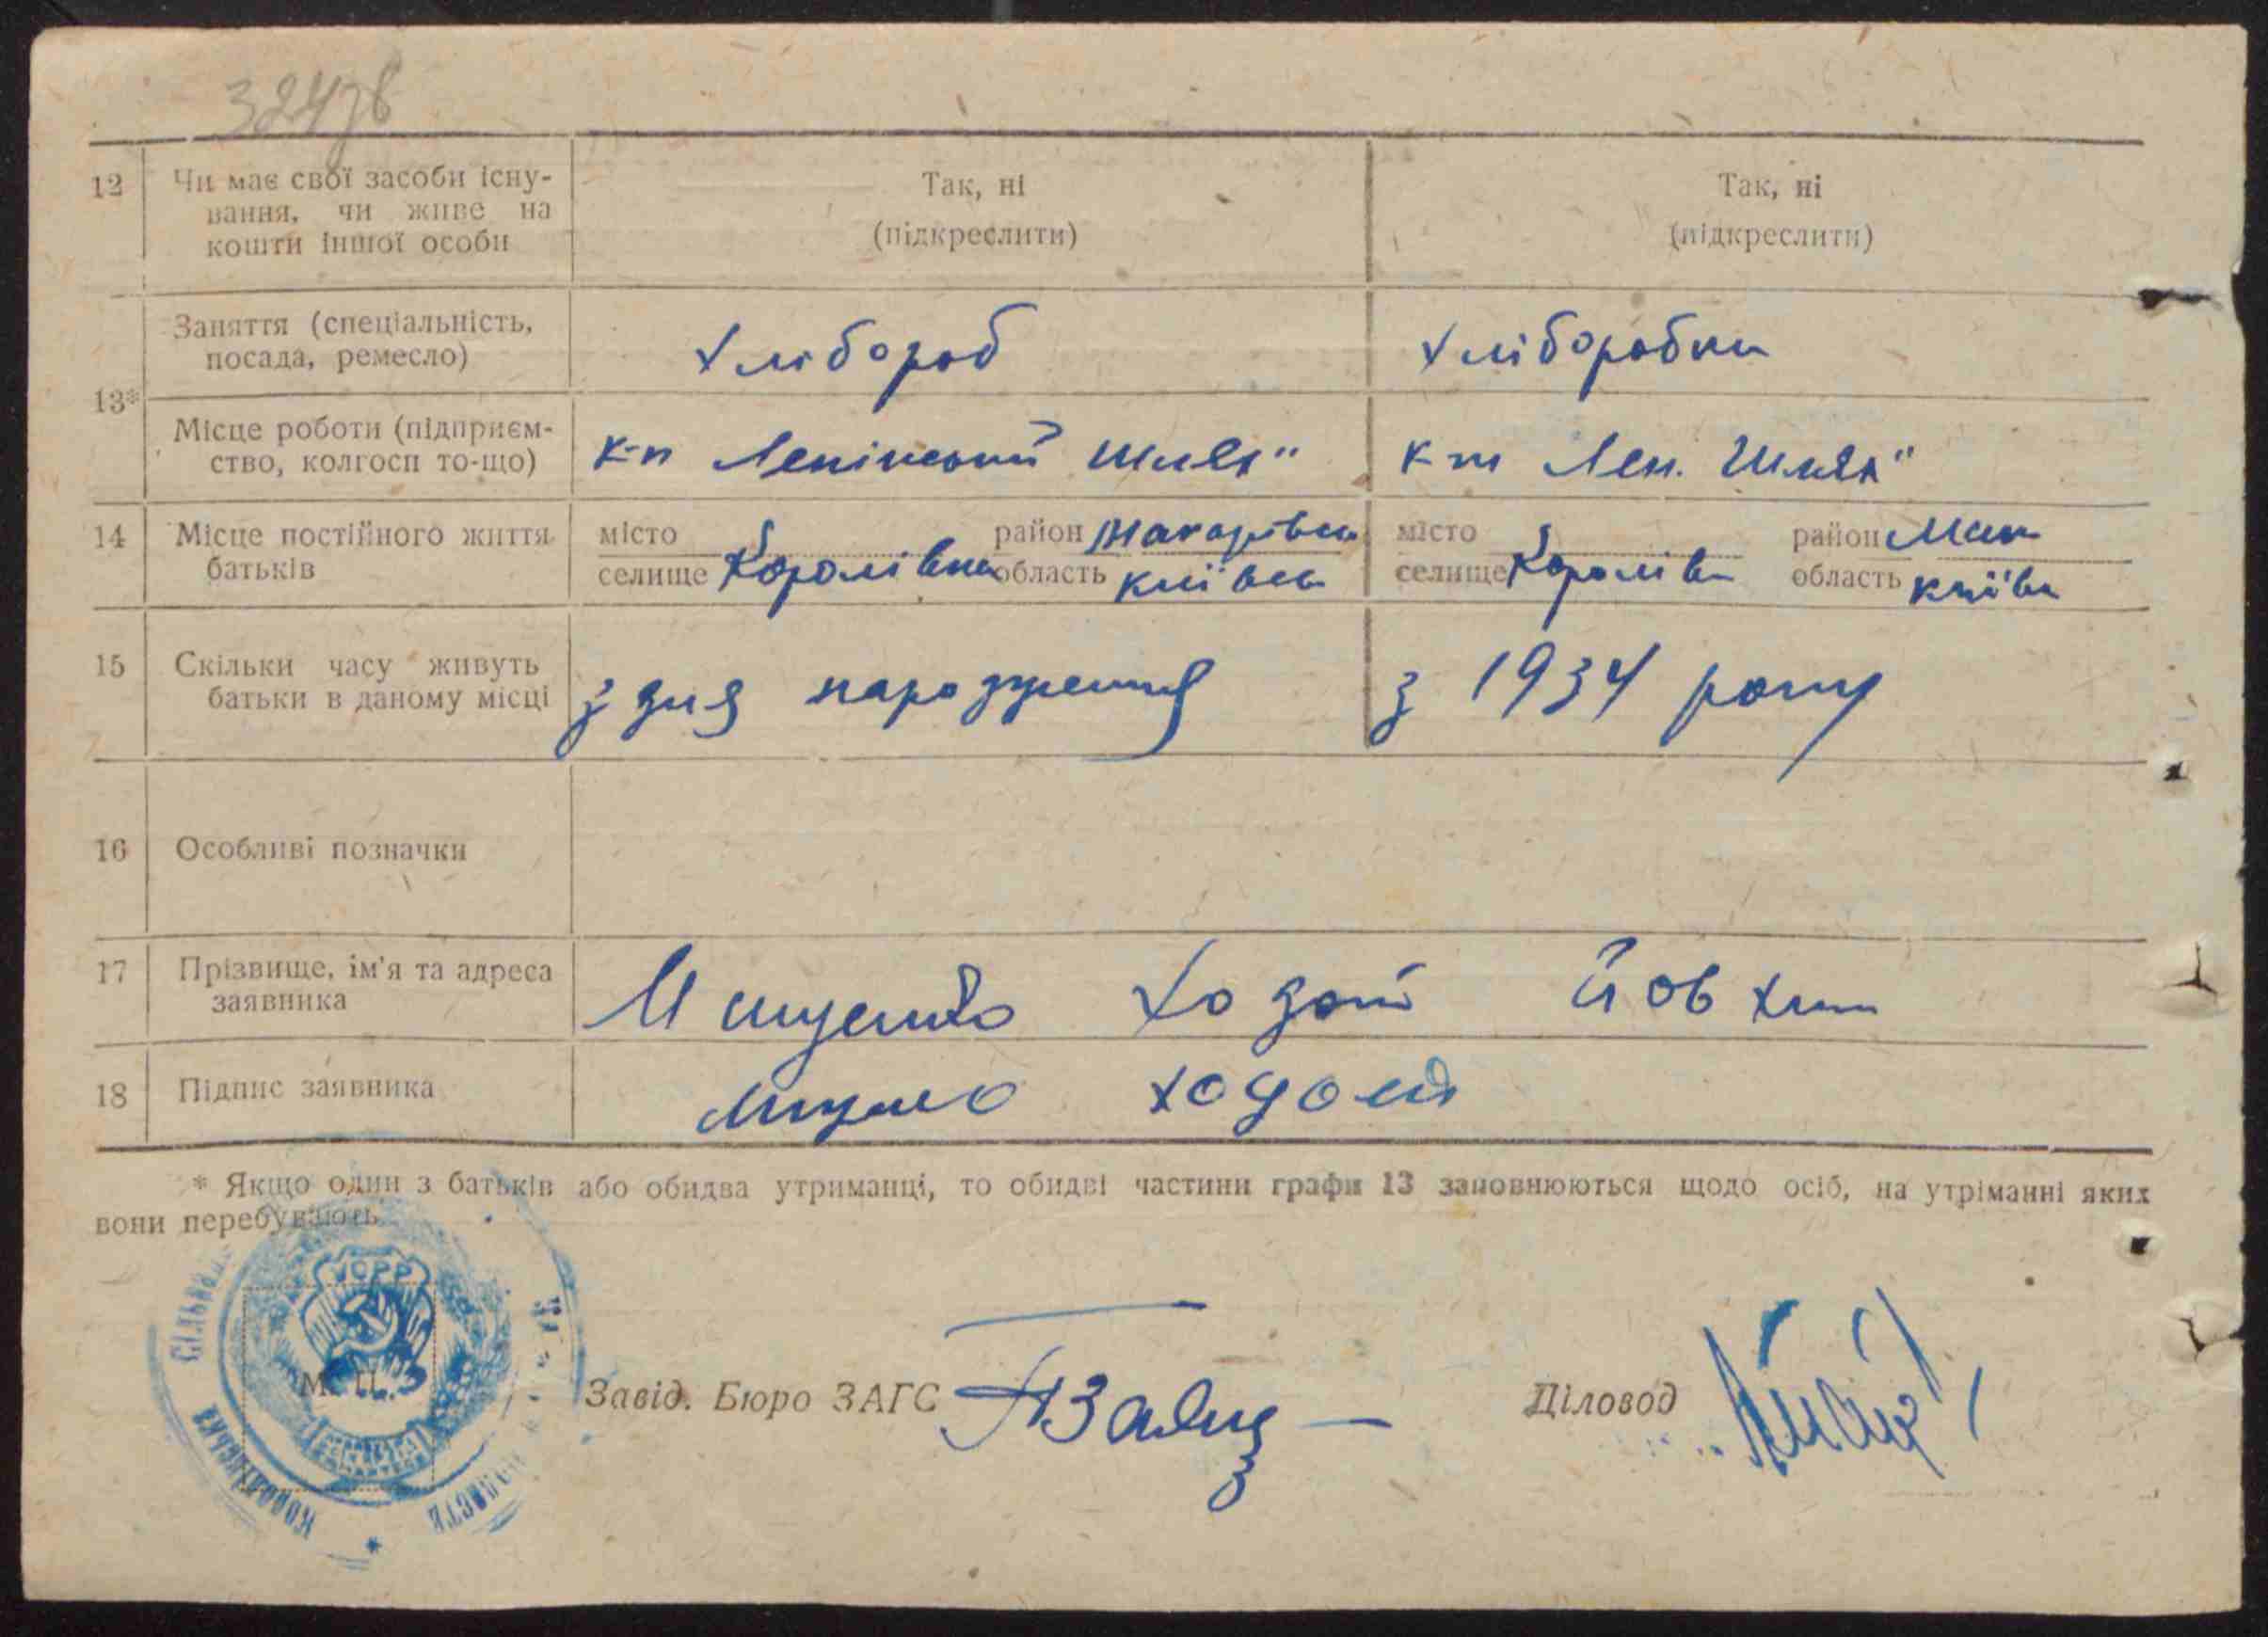 32478
12 Чи має свої засоби існу-
вання, чи живе на
кошти іншої особи
Так, ні
(підкреслити)
Так, ні
(підкреслити)
13*
Заняття (спеціальність,
посада, ремесло)
хлібороб
хліборобка
Місце роботи (підприєм-
ство, колгосп то-що)
к-п Ленінський шлях"
к-п Лен. Шлях"
14 Місце постійного життя
батьків
місто
селище Королівка
район Макарівськ
область київськ
місто
селище Королівк
район Мак
область київс
15 Скільки часу живуть
батьки в даному місці
з дня народження
з 1934 року
16 Особливі позначки
17 Прізвище, ім'я та адреса
заявника
Мищенко Ходой
18 Підпис заявника
* Якщо один з батьків або обидва утриманці, то обидві частини графи 13 заповнюються щодо осіб, на утріманні яких
вони перебувають
УСРР
М. П.
Завід. Бюро ЗАГС
Діловод